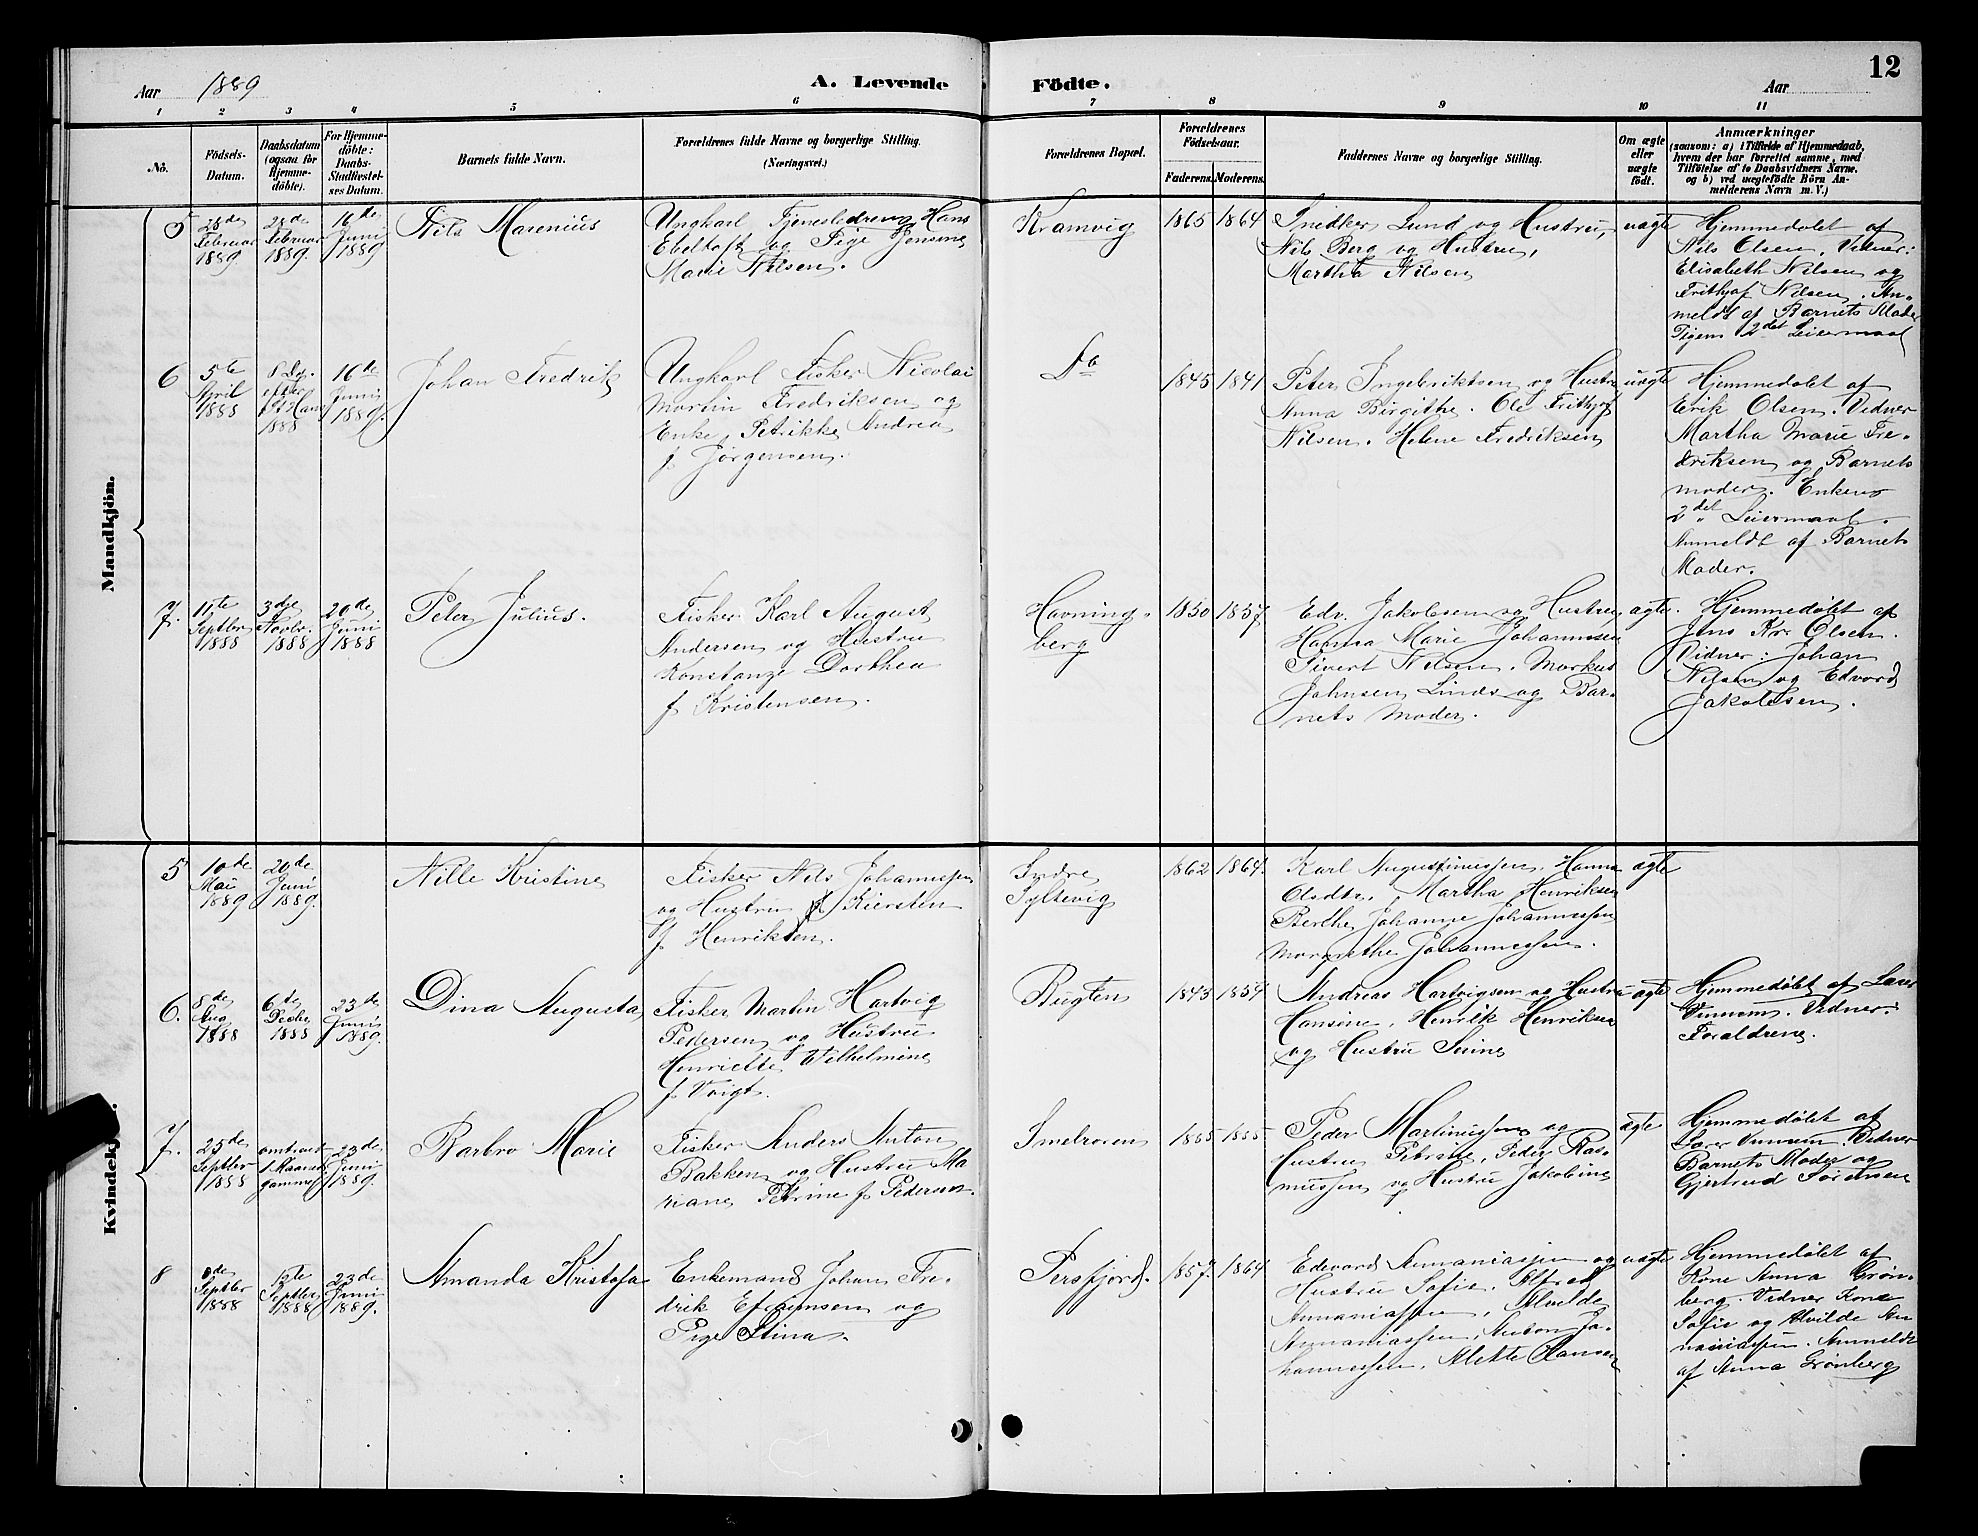 12
Aar 1889
A. Levende Födte.
Aar
1 2 3 4 5 6 7 8 9 10 11
No.
Födsels-
Datum.
Daabsdatum
(ogsaa for
Hjemme-
döbte).
For Hjemme-
döbte:
Daabs-
Stadfæstel-
ses Datum.
Barnets fulde Navn.
Forældrenes fulde Navne og borgerlige Stilling.
(Næringsvei.)
Forældrenes Bopæl.
Forældrenes
Födselsaar.
Faderens. Moderens.
Faddernes Navne og borgerlige Stilling.
Om ægte
eller
uægte
födt.
Anmærkninger
(saasom: a) i Tilfælde af Hjemmedaab,
hvem der har forrettet samme, med
Tilföielse af to Daabsvidners Navne.
og b) ved uægtefödte Börn An-
melderens Navn m. V.)
Mandkjön.
5
28de
Februar
1889.
28de
Februar
1889.
16de
Juni
1889
Nils Marenius
Ungkarl Tjenestedreng Hans
Ebeltoft og Pige Jensine
Marie Nilsen.
Kramvig
1865 1864
Snedker Lund og Hustru,
Nils Berg og Hustru,
Martha Nilsen
uægte
Hjemmedøbt af
Nils Olsen, Vidner:
Elisabeth Nilsen og
Frithjof Nilsen. An-
meldt af Barnets Moder
Pigens 2det Leiermaal
6
5te
April
1888
8 Dg.
efter
St Hans
1888
16de
Juni
1889.
Johan Fredrik
Ungkarl Fisker Nicolai
Martin Fredriksen og
Enke Petrikke Andrea
f. Jörgensen.
Do
1845 1841
Peter Ingebriktsen og Hustru
Anna Birgithe. Ole Frithjof
Nilsen. Helene Fredriksen
uægte
Hjemmedøbt af
Erik Olsen. Vidner
Martha Marie Fre-
driksen og Barnets
moder. Enkens
2det Leiermaal.
Anmeldt af Barnets
Moder.
7.
11te
Septbr
1888
3dje
Novbr.
1888
20de
Juni
1888
Peter Julius.
Fisker Karl August
Andersen og Hustru
Konstanze Dorthea
f Kristensen.
Havning-
berg
1850 1857
Edv. Jakobsen og Hustru,
Hanna Marie Johannesen
Sivert Nilsen. Markus
Johnsen Linds og Bar-
nets Moder.
ægte.
Hjemmedøbt af
Jens Kr. Olsen.
Vidner: Johan
Nilsen og Edvard
Jakobsen.
Kvindekj
5
10de
Mai
1889
20de
Juni
1889.
Nille Kristine
Fisker Nils Johannessen
og Hustru Kiersten
f Henriksen.
Indre
Syltevig
1862 1864.
Karl Augustinussen, Hanna
Olsdtr, Martha Henriksen
Berthe Johanne Johannessen
Margrethe Johannessen.
ægte
6.
8de
Aug
1888
6te
Decbr
1888
23de
Juni
1889.
Dina Augusta
Fisker Martin Hartvig
Pedersen og Hustru
Henriette Wilhelmine
f Voigt.
Bugten
1843 1859
Andreas Hartvigsen og Hustru
Hansine. Henrik Henriksen
og Hustru
ægte
Hjemmedøbt af Lærer
Vinnem. Vidner:
Foraldrene.
7.
25de
Septbr
1888
omtrent
1 Maaned
gammel
23de
Juni
1889.
Barbro Marie
Fisker Anders Anton
Bakken og Hustru Ma
riane Petrine f. Pedersen.
Smelroren
1865 1865
Peder Martinussen og
Hustru Petrine, Peder Ras-
mussen og Hustru Jakobine
ægte
Hjemmedøbt af
Lærer Vinnem. Vidner
Barnets Moder og
Gjertrud Sörensen
8
Septbr
1888
12te
Septbr
1888
23de
Juni
1889.
Amanda Kristofa
Enkemand Johan Fre-
drik Efraimsen og
Pige Stina.
Persfjord.
1857. 1864
Edevard Annaniassen og
Hustru Sofie. Alfred
Annaniassen, Alvilde
Annaniassen, Anton Jo-
hannessen. Alette Hansen
uægte
Hjemmedøbt af
Kone Anna Grön-
berg. Vidner Kone
Sofie og Alvilde An
naniassen. Anmeldt
af Anna Grönberg